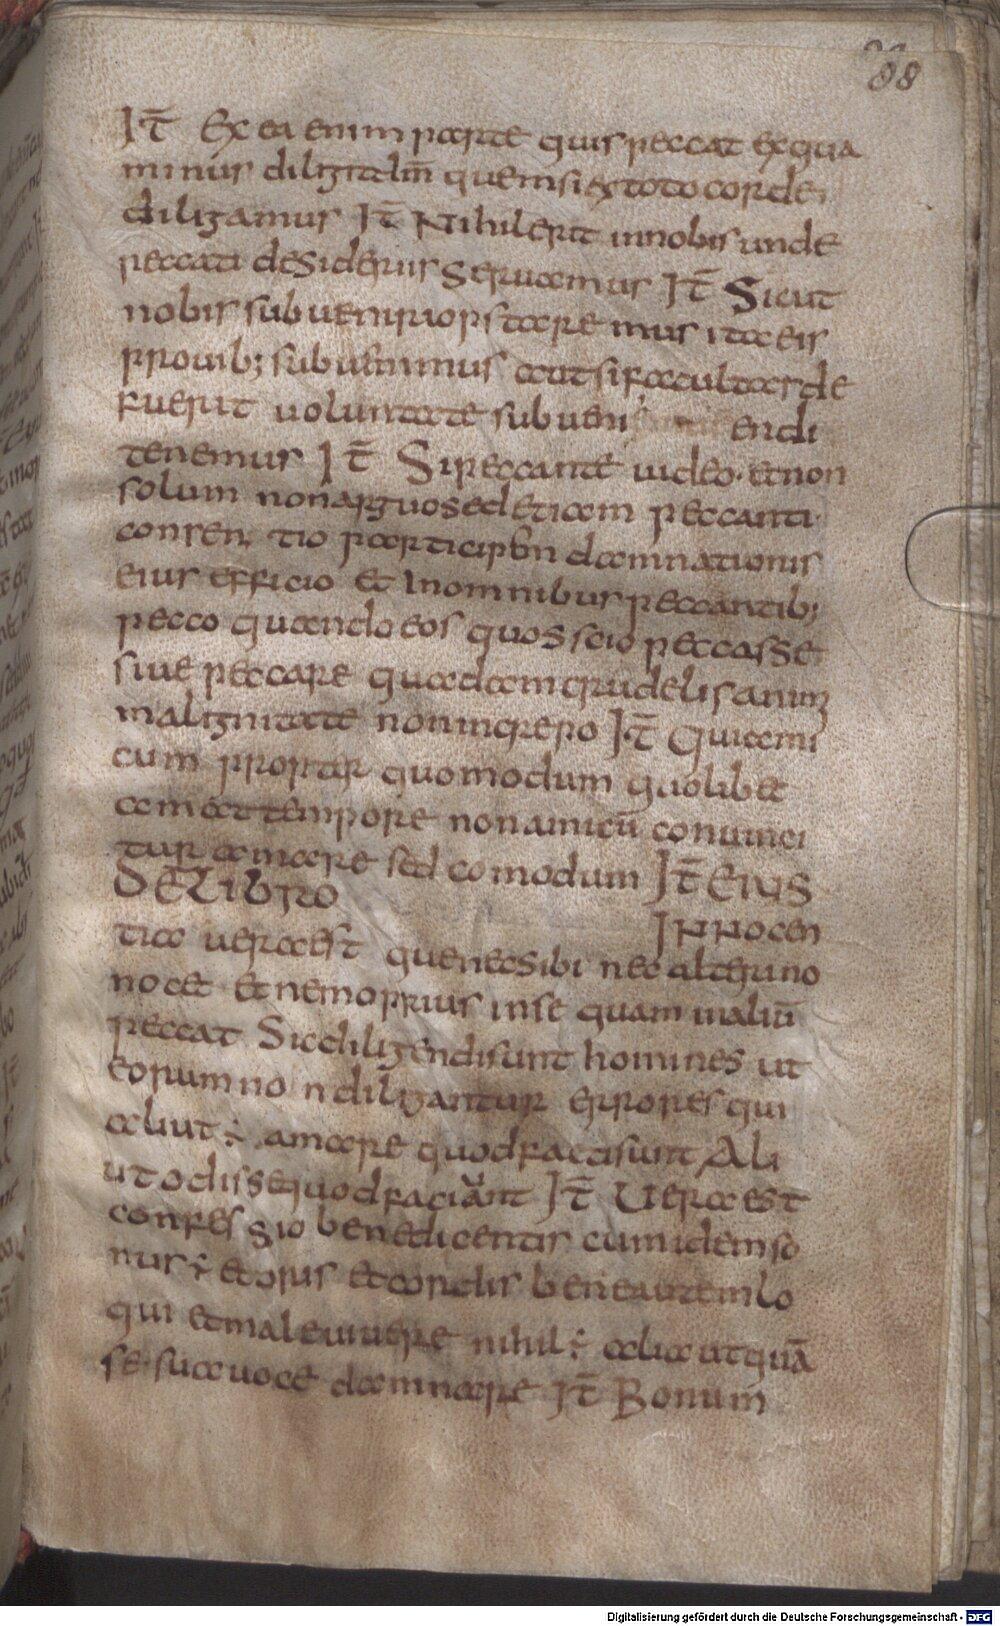 88
It̄ Ex ea enim parte quis peccat ex qua
minus diligit dm̄ quem si ex toto corde
diligamus It̄ Nihil erit in nobis unde
peccati desideriis seruiamus It̄ Sicut
nobis subueniri optaremus ita eis
pro uirib; subuenimus aut si facultas de
fuerit uoluntate subueni endi
tenemus It̄ Si peccante uideo et non
solum non arguo sed etiam peccanti
consen tio participē damnationis
eius efficio et In omnibus peccantib;
pecco quando eos quos scio peccasse
siue peccare quadam crudelis animę
malignitate non increpo It̄ Qui ami
cum propter quomodum quolibet
amat tempore non amicū conuinci
tur amare sed comodum It̄ Eius
De Libro
Innocen
tia uera est que nec sibi nec alteri no
nocet et nemo prius in se quam in aliū
peccat Sic diligendi sunt homines ut
eorum non diligantur errores qui
aliut ÷ amare quod facti sunt Ali
ut odisse quod faciunt It̄ Uera est
confessio benedicentis cum idem so
nus ÷ et oris et cordis bene autem lo
qui et male uiuere nihil ÷ aliut quā
se sua uoce damnare It̄ Bonum
Digitalisierung gefördert durch die Deutsche Forschungsgemeinschaft - DFG